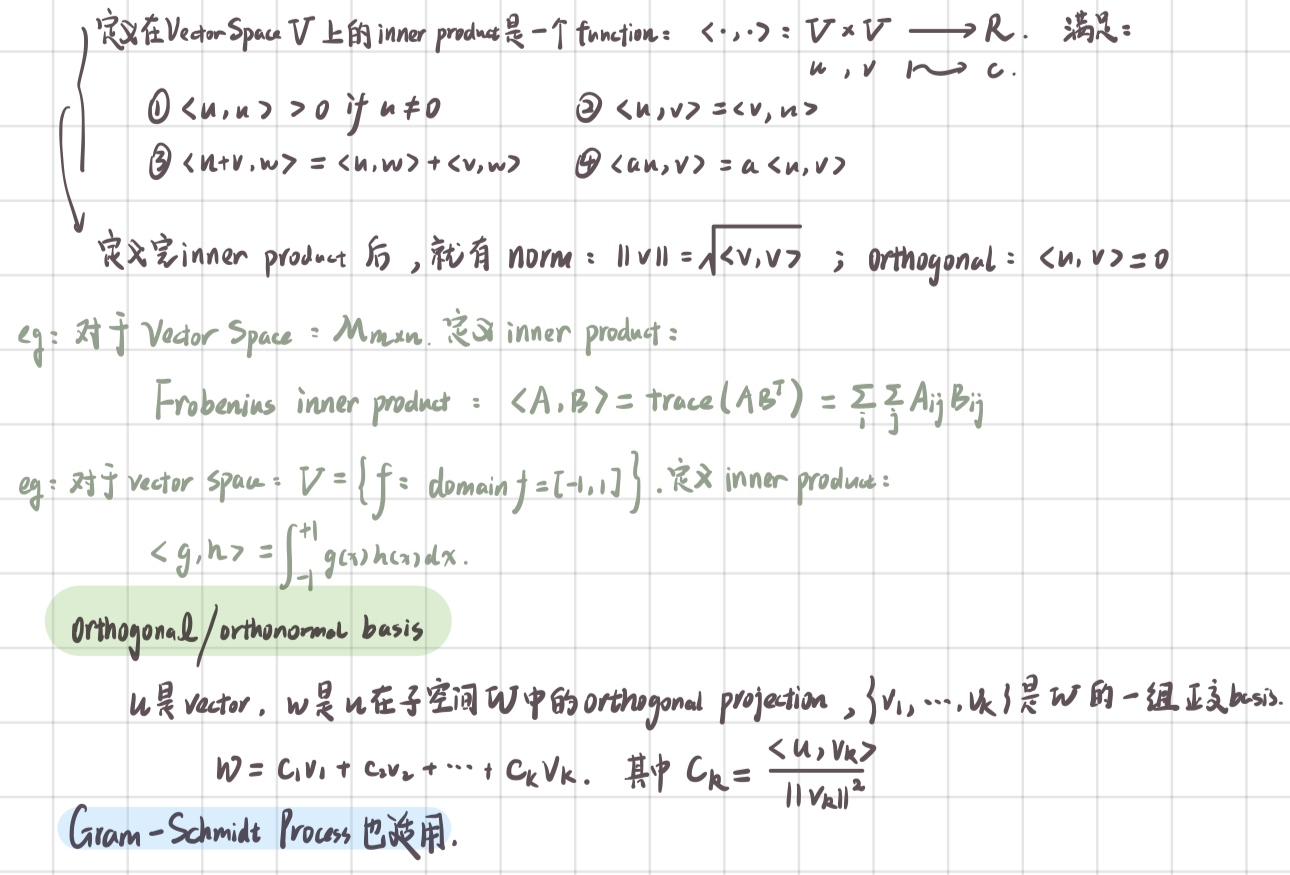 定义在Vector Space V 上的 inner product是一个 function: <·,·>: V × V ⟶ R. 满足:
u , v ⟼ c.
① <u,u> > 0 if u ≠ 0 ② <u,v> = <v,u>
③ <u+v,w> = <u,w> + <v,w> ④ <au,v> = a <u,v>
定义完inner product 后,就有 norm: ||v|| = √<v,v> ; orthogonal: <u,v> = 0
eg: 对于 Vector Space: Mm×n. 定义 inner product:
Frobenius inner product: <A,B> = trace(ABᵀ) = Σi Σj Aij Bij
eg: 对于 vector space: V = {f: domain f = [-1,1]}. 定义 inner product:
<g,h> = ∫₋₁⁺¹ g(x)h(x)dx.
orthogonal/orthonormal basis
u是vector. w是u在子空间W中的orthogonal projection, {v₁, ⋯, vk}是W的一组正交basis.
W = c₁v₁ + c₂v₂ + ⋯ + ckvk. 其中 Ck = <u,vk> / ||vk||²
Gram-Schmidt Process也适用.